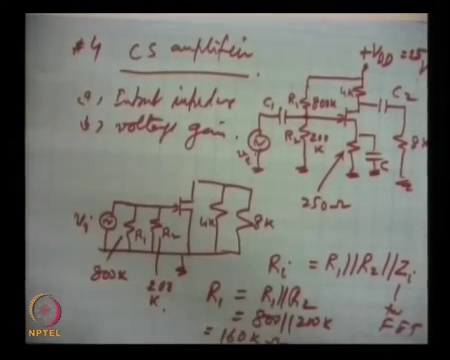 #4 CS amplifier
a, Input impedance
b, voltage gain.
+VDD = 25V
4K
C2
C1
R1
800K
R2
200
K
8K
C
250Ω
Vi
Vi
R1
R2
4K
8K
800K
200
K.
Ri = R1||R2||Zi
R1 = R1||R2
= 800||200K
= 160KΩ
FET
NPTEL